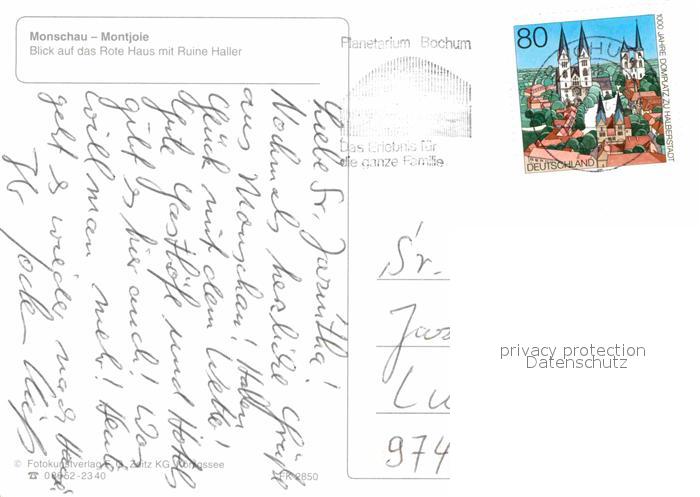 Monschau – Montjoie
Blick auf das Rote Haus mit Ruine Haller
Planetarium Bochum
Das Erlebnis für
die ganze Familie
80
1000 JAHRE DOMPLATZ ZU HALBERSTADT
DEUTSCHLAND
BOCHUM
Liebe Sr. Jacintha!
Nochmals herzliche Grüße
aus Monschau! Hatten
Glück mit dem Wetter!
Gute Gasthöfe und Hotels
gibt es hier auch! Was
will man mehr! Heute
geht es wieder nach Hause
Ihr
Sr.
Lu
974
privacy protection
Datenschutz
© Fotokunstverlag Zeitz KG, Königssee
☎ 08652-2340
FK 2850